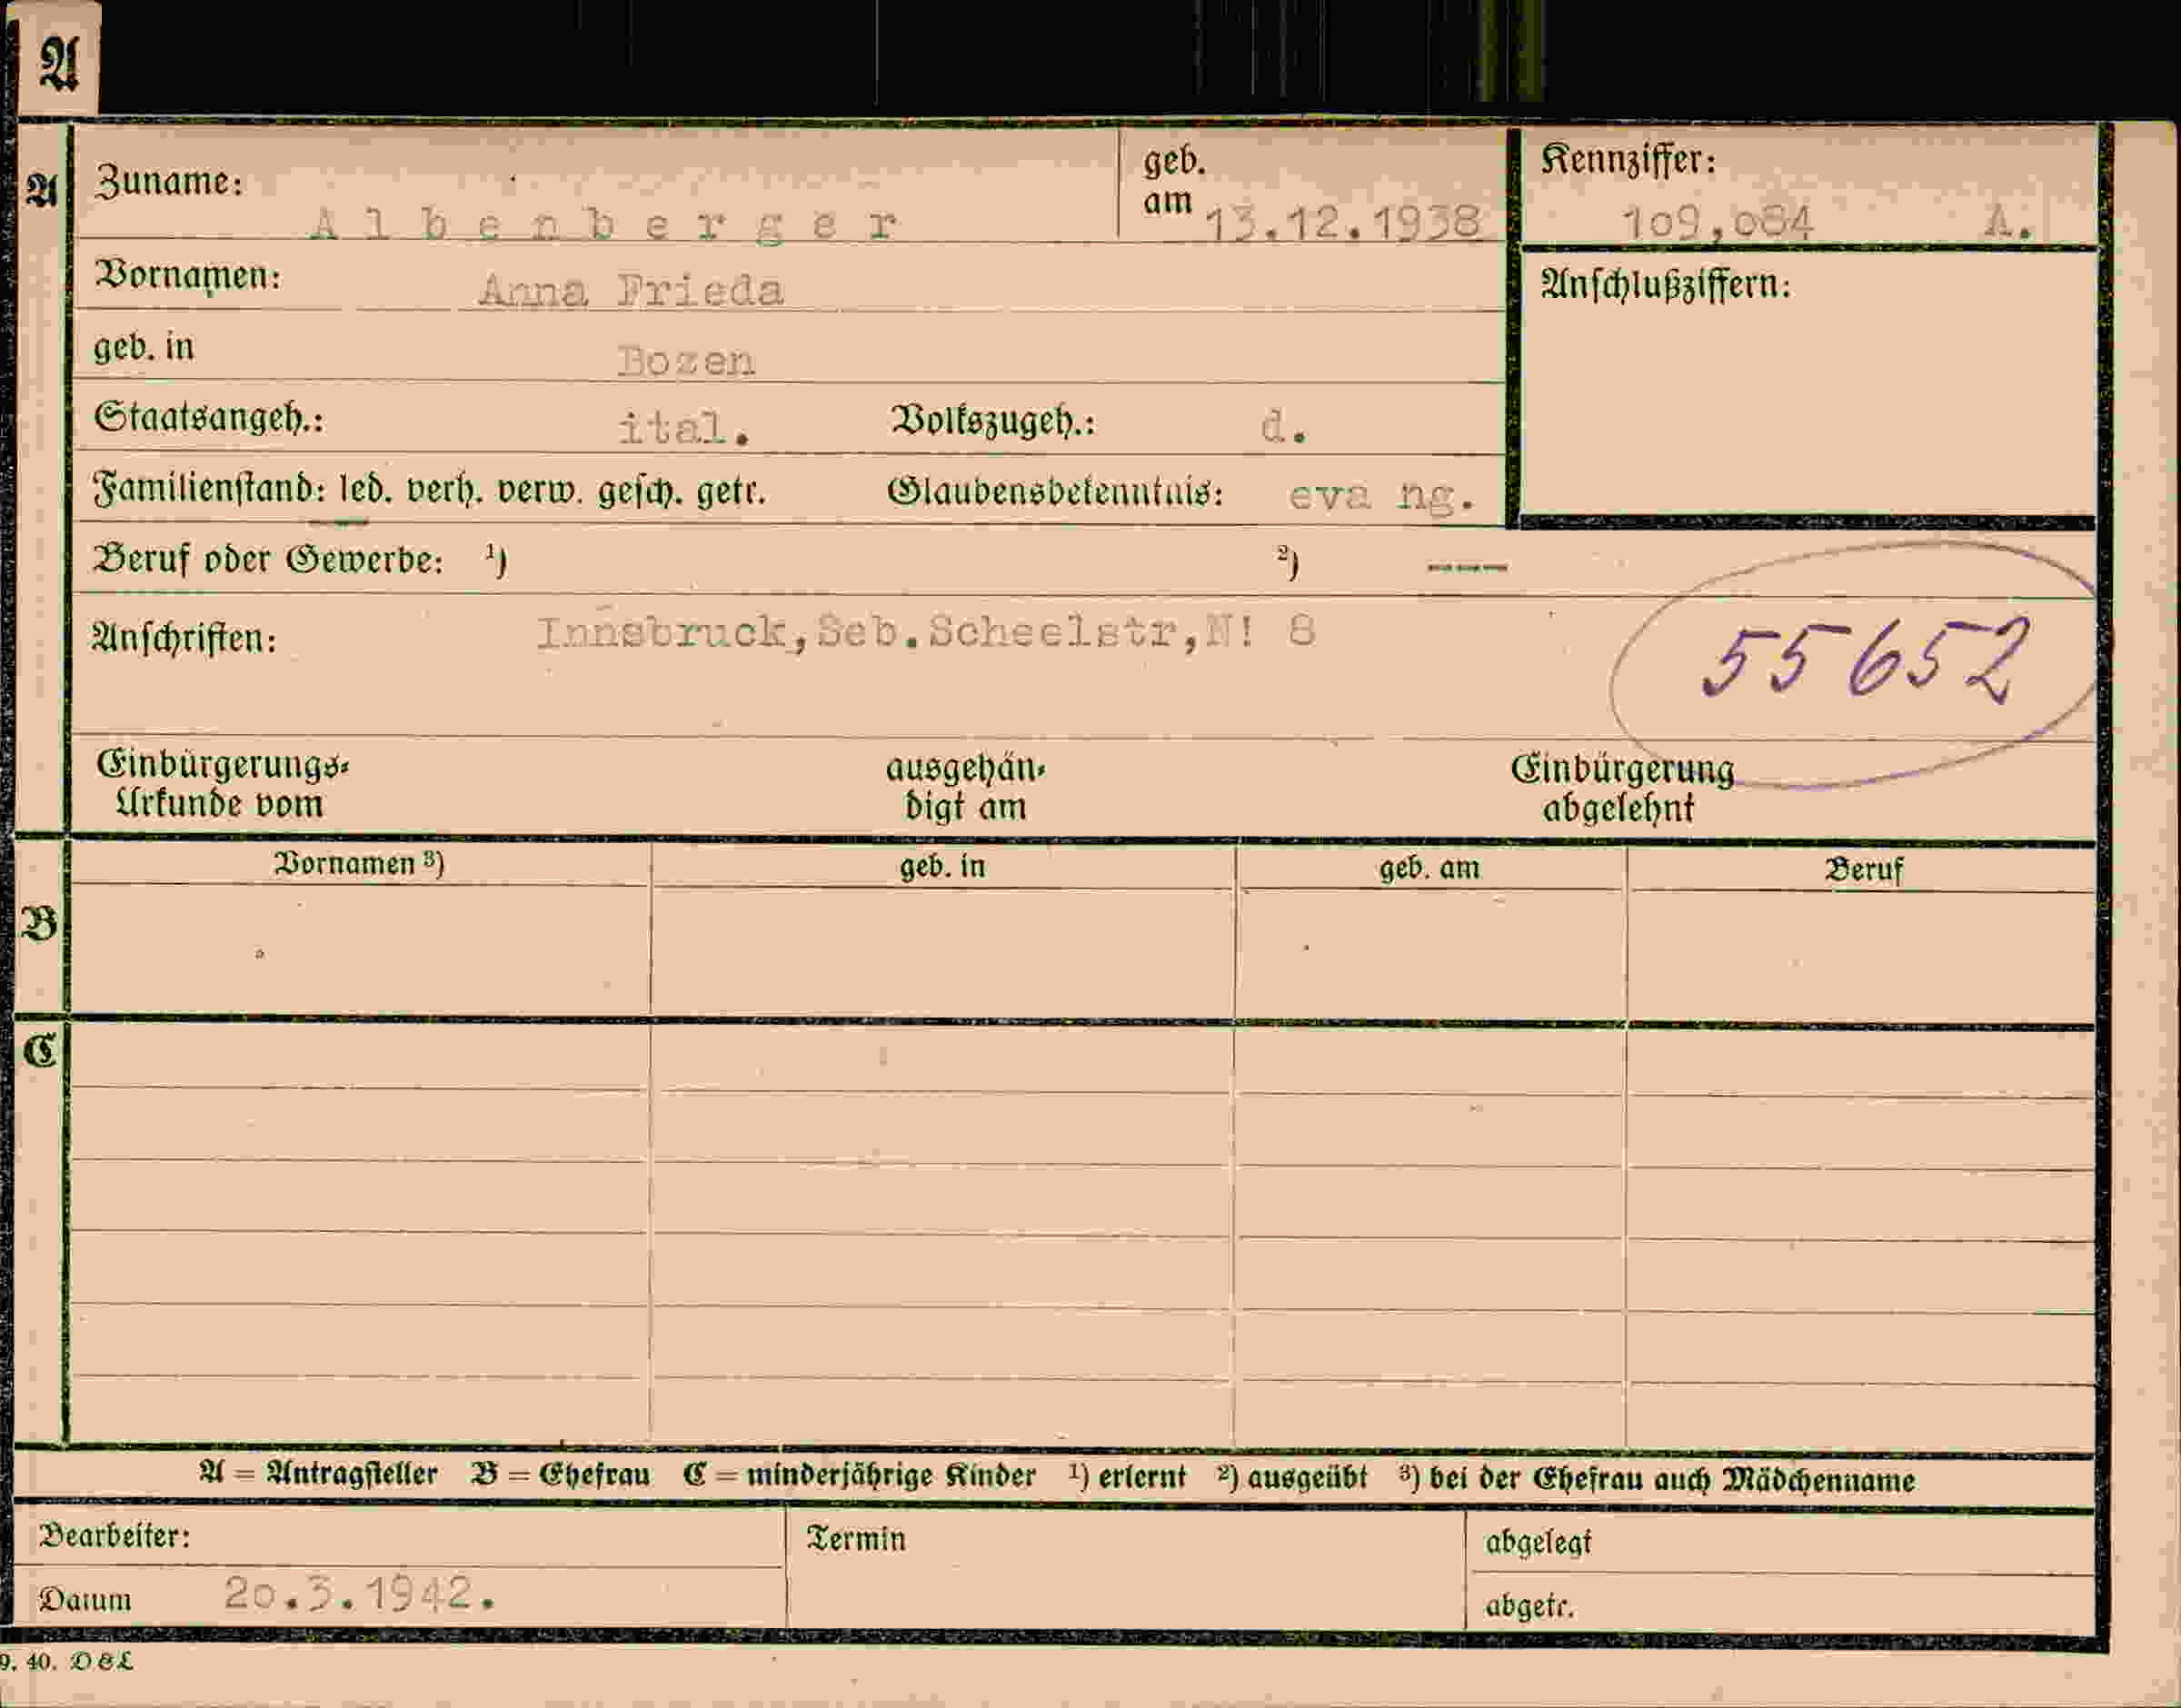 A
A
Zuname: Albenberger
geb. am 13.12.1938
Kennziffer: 109,084 A.
Vornamen: Anna Frieda
Anschlußziffern:
geb. in Bozen
Staatsangeh.: ital. Volkszugeh.: d.
Familienstand: led. verh. verw. gesch. getr. Glaubensbekenntnis: eva ng.
Beruf oder Gewerbe: 1) 2) ----
Anschriften: Innsbruck,Seb.Scheelstr,N! 8
55652
Einbürgerungs- ausgehän- Einbürgerung
Urkunde vom digt am abgelehnt
Vornamen 3) geb. in geb. am Beruf
B
C
A = Antragsteller B = Ehefrau C = minderjährige Kinder 1) erlernt 2) ausgeübt 3) bei der Ehefrau auch Mädchenname
Bearbeiter: Termin abgelegt
Datum 20.3.1942. abgetr.
9. 40. D&L